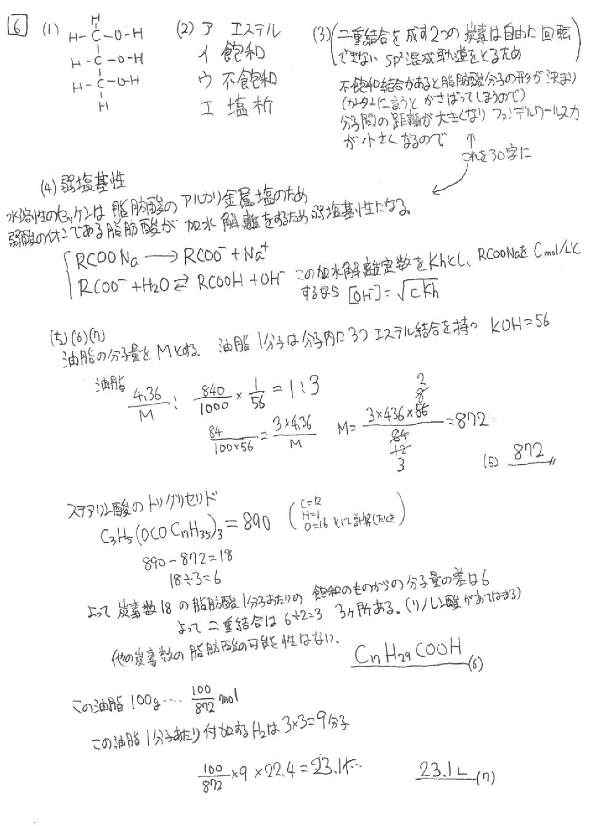 6 (1) (2) ア エステル
イ 飽和
ウ 不飽和
エ 塩析
H
H-C-O-H
H-C-O-H
H-C-O-H
H
(3) (二重結合を成す2つの炭素は自由に回転
できない sp²混成軌道をとるため
不飽和結合があると脂肪酸分子の形が決まり
(かんたんに言うと かさばってしまうので)
分子間の距離が大きくなり ファンデルワールス力
が小さくなるので
これを30字に
(4) 弱塩基性
水溶性のセッケンは 脂肪酸の アルカリ金属塩のため
弱酸のイオンである脂肪酸が 加水解離をするため弱塩基性になる。
RCOONa → RCOO⁻ + Na⁺
RCOO⁻ + H₂O ⇄ RCOOH + OH⁻
この加水解離定数をKhとし、RCOONaを C mol/Lと
するなら [OH⁻] = √CKh
(5)(6)(7)
油脂の分子量を Mとする. 油脂1分子は分子内に3つ エステル結合を持つ KOH=56
油脂 4.36/M : 840/1000 × 1/56 = 1:3
84/100×56 = 3×4.36/M M = 3×436×56/84 = 872
2
8
12
3
(5) 872
ステアリン酸のトリグリセリド
C₃H₅(OCOC₁₇H₃₅)₃ = 890
C=12
H=1
O=16 として計算
890-872=18
18÷3=6
よって 炭素数18 の脂肪酸1分子あたりの 飽和のものからの分子量の差は6
よって 二重結合は 6÷2=3 3ヶ所ある.
他の炭素数の 脂肪酸の可能性はない.
C₁₇H₂₉COOH (6)
この油脂 100g … 100/872 mol
この油脂1分子あたり付加するH₂は 3×3=9分子
100/872 × 9 × 22.4 = 23.1…
23.1L (7)